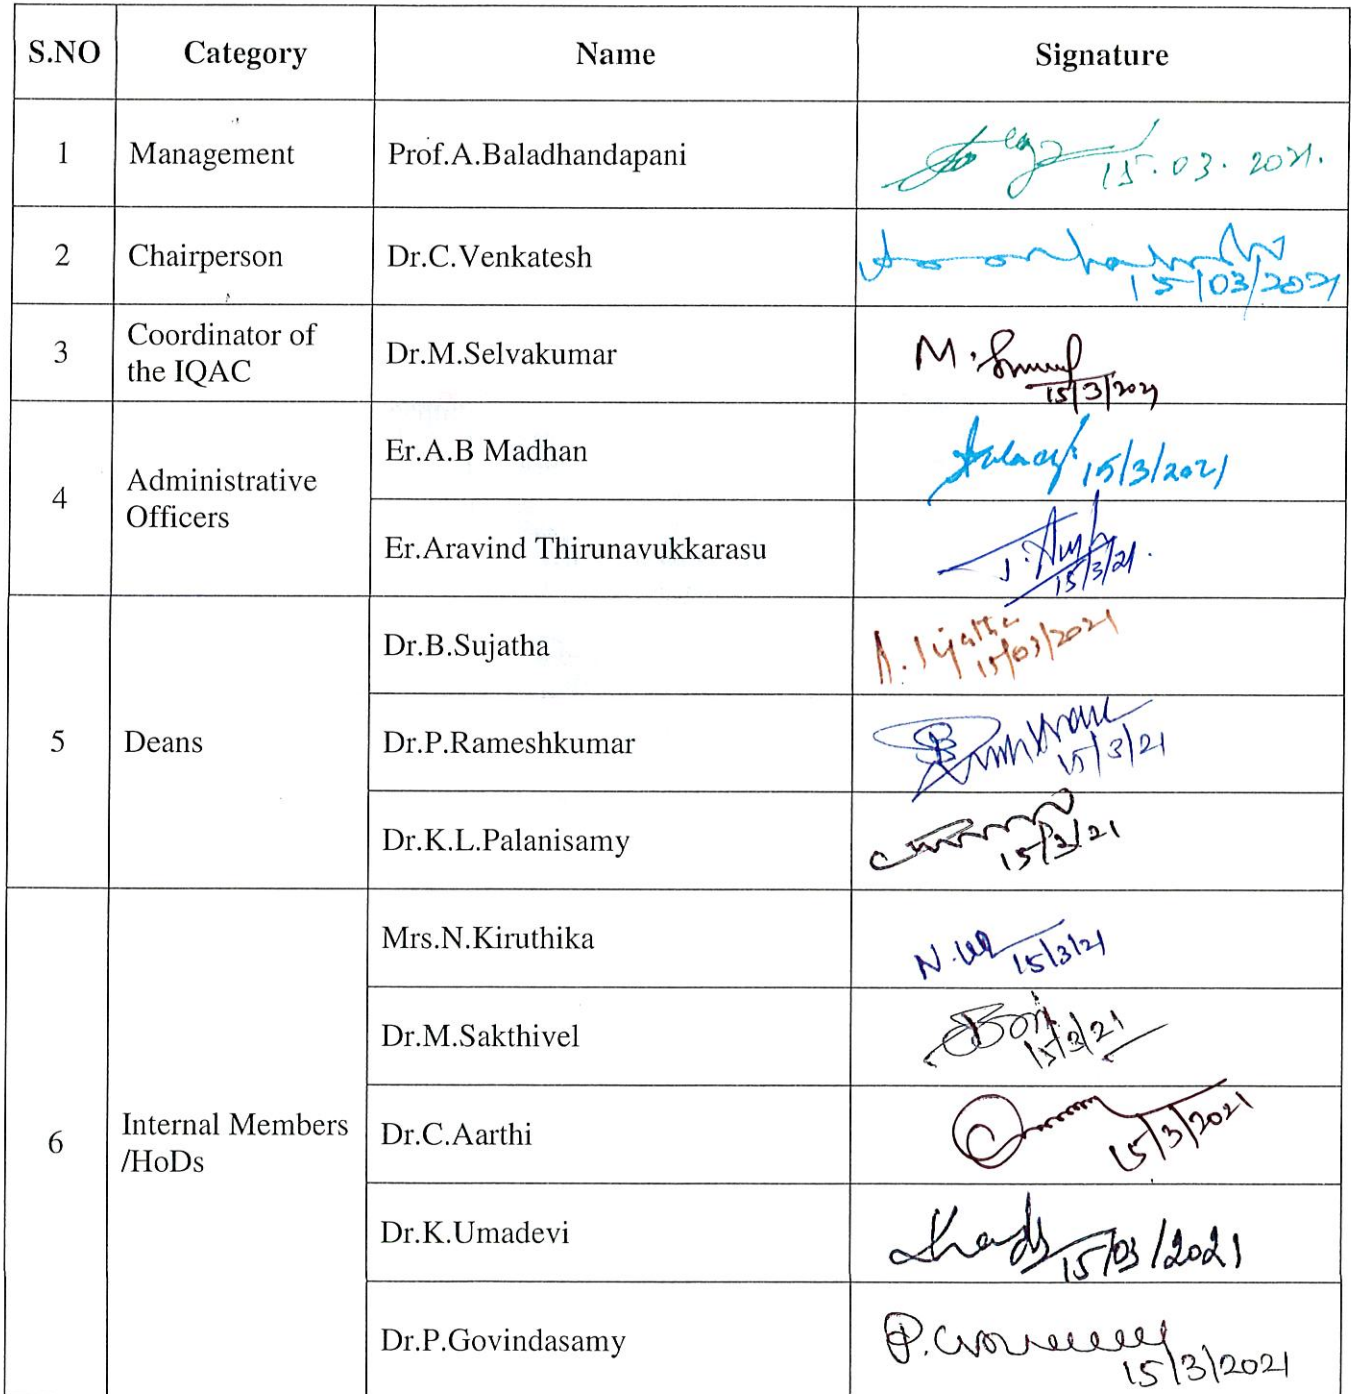 S.NO Category Name Signature
1 Management Prof.A.Baladhandapani 15.03.2021.
2 Chairperson Dr.C.Venkatesh 15/03/2021
3 Coordinator of the IQAC Dr.M.Selvakumar M. 15/3/2021
4 Administrative Officers Er.A.B Madhan 15/3/2021
Er.Aravind Thirunavukkarasu 15/3/21.
5 Deans Dr.B.Sujatha 15/03/2021
Dr.P.Rameshkumar 15/3/21
Dr.K.L.Palanisamy 15/3/21
6 Internal Members /HoDs Mrs.N.Kiruthika N. 15/3/21
Dr.M.Sakthivel 15/3/21
Dr.C.Aarthi 15/3/2021
Dr.K.Umadevi 15/03/2021
Dr.P.Govindasamy P. 15/3/2021